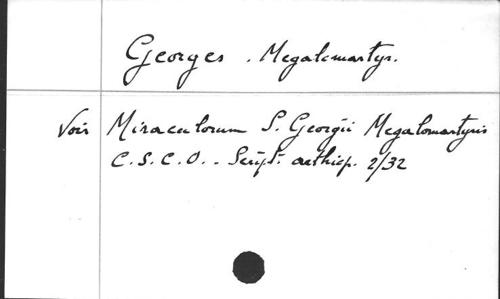 Georges . Megalomartyr.
Voir Miraculorum S. Georgii Megalomartyris
C.S.C.O. - Script. aethiop. 2/32